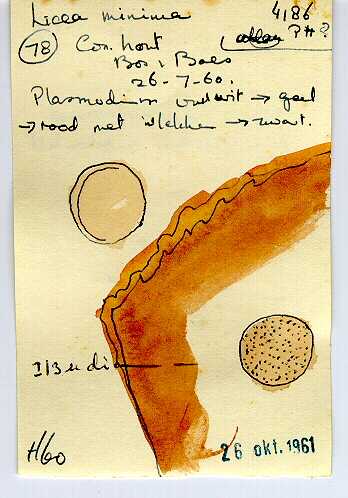 Licea minima 4186
78 Con. hout PH?
Bos v. Baes
26-7-60.
Plasmodium wit → geel
→ rood met vlekken → zwart.
H60
26 okt. 1961